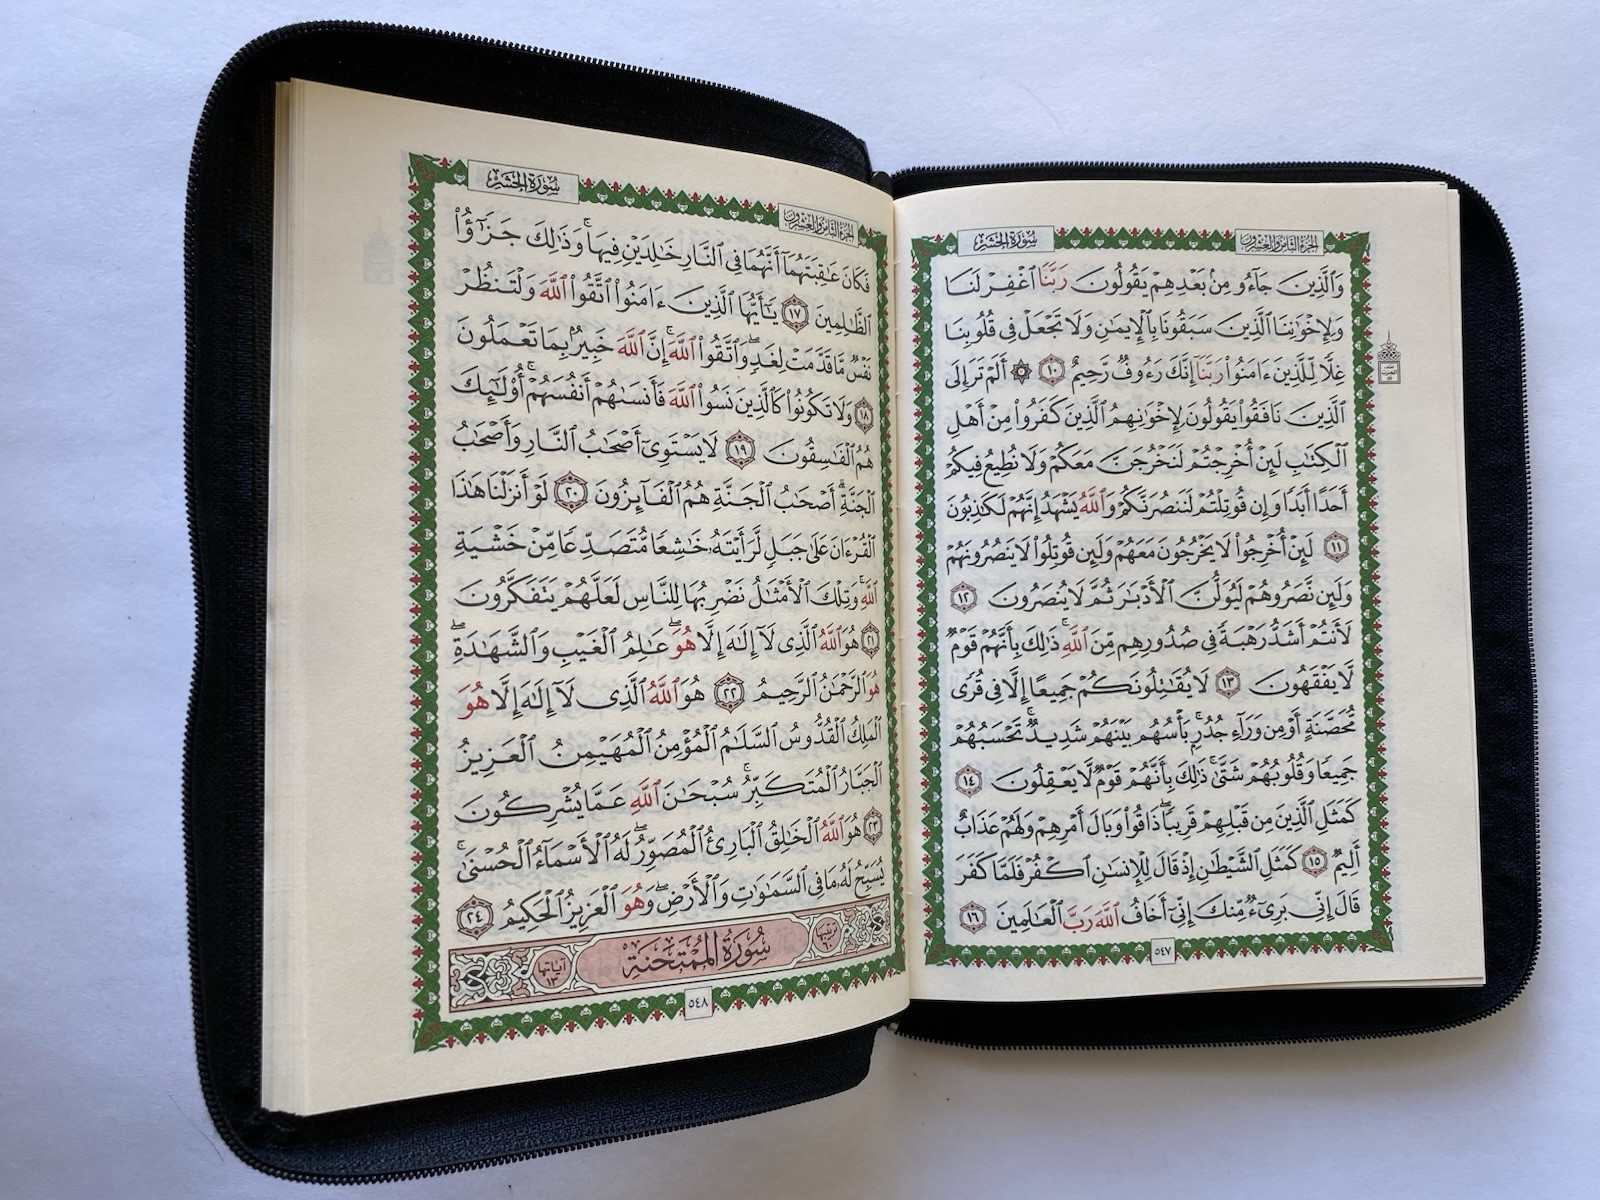 الجزء الثامن والعشرون
سورة الحشر
وَٱلَّذِينَ جَآءُو مِنۢ بَعْدِهِمْ يَقُولُونَ رَبَّنَا ٱغْفِرْ لَنَا
وَلِإِخْوَٰنِنَا ٱلَّذِينَ سَبَقُونَا بِٱلْإِيمَٰنِ وَلَا تَجْعَلْ فِى قُلُوبِنَا
غِلًّا لِّلَّذِينَ ءَامَنُوا۟ رَبَّنَآ إِنَّكَ رَءُوفٌ رَّحِيمٌ ١٠ ۞ أَلَمْ تَرَ إِلَى
ٱلَّذِينَ نَافَقُوا۟ يَقُولُونَ لِإِخْوَٰنِهِمُ ٱلَّذِينَ كَفَرُوا۟ مِنْ أَهْلِ
ٱلْكِتَٰبِ لَئِنْ أُخْرِجْتُمْ لَنَخْرُجَنَّ مَعَكُمْ وَلَا نُطِيعُ فِيكُمْ
أَحَدًا أَبَدًا وَإِن قُوتِلْتُمْ لَنَنصُرَنَّكُمْ وَٱللَّهُ يَشْهَدُ إِنَّهُمْ لَكَٰذِبُونَ
١١ لَئِنْ أُخْرِجُوا۟ لَا يَخْرُجُونَ مَعَهُمْ وَلَئِن قُوتِلُوا۟ لَا يَنصُرُونَهُمْ
وَلَئِن نَّصَرُوهُمْ لَيُوَلُّنَّ ٱلْأَدْبَٰرَ ثُمَّ لَا يُنصَرُونَ ١٢
لَأَنتُمْ أَشَدُّ رَهْبَةً فِى صُدُورِهِم مِّنَ ٱللَّهِ ۚ ذَٰلِكَ بِأَنَّهُمْ قَوْمٌ
لَّا يَفْقَهُونَ ١٣ لَا يُقَٰتِلُونَكُمْ جَمِيعًا إِلَّا فِى قُرًى
مُّحَصَّنَةٍ أَوْ مِن وَرَآءِ جُدُرٍۭ ۚ بَأْسُهُم بَيْنَهُمْ شَدِيدٌ ۚ تَحْسَبُهُمْ
جَمِيعًا وَقُلُوبُهُمْ شَتَّىٰ ۚ ذَٰلِكَ بِأَنَّهُمْ قَوْمٌ لَّا يَعْقِلُونَ ١٤
كَمَثَلِ ٱلَّذِينَ مِن قَبْلِهِمْ قَرِيبًا ۖ ذَاقُوا۟ وَبَالَ أَمْرِهِمْ وَلَهُمْ عَذَابٌ
أَلِيمٌ ١٥ كَمَثَلِ ٱلشَّيْطَٰنِ إِذْ قَالَ لِلْإِنسَٰنِ ٱكْفُرْ فَلَمَّا كَفَرَ
قَالَ إِنِّى بَرِىٓءٌ مِّنكَ إِنِّىٓ أَخَافُ ٱللَّهَ رَبَّ ٱلْعَٰلَمِينَ ١٦
٥٤٧
الجزء الثامن والعشرون
سورة الحشر
فَكَانَ عَٰقِبَتَهُمَآ أَنَّهُمَا فِى ٱلنَّارِ خَٰلِدَيْنِ فِيهَا ۚ وَذَٰلِكَ جَزَٰٓؤُا۟
ٱلظَّٰلِمِينَ ١٧ يَٰٓأَيُّهَا ٱلَّذِينَ ءَامَنُوا۟ ٱتَّقُوا۟ ٱللَّهَ وَلْتَنظُرْ
نَفْسٌ مَّا قَدَّمَتْ لِغَدٍ ۖ وَٱتَّقُوا۟ ٱللَّهَ ۚ إِنَّ ٱللَّهَ خَبِيرٌۢ بِمَا تَعْمَلُونَ
١٨ وَلَا تَكُونُوا۟ كَٱلَّذِينَ نَسُوا۟ ٱللَّهَ فَأَنسَىٰهُمْ أَنفُسَهُمْ ۚ أُو۟لَٰٓئِكَ
هُمُ ٱلْفَٰسِقُونَ ١٩ لَا يَسْتَوِىٓ أَصْحَٰبُ ٱلنَّارِ وَأَصْحَٰبُ
ٱلْجَنَّةِ ۚ أَصْحَٰبُ ٱلْجَنَّةِ هُمُ ٱلْفَآئِزُونَ ٢٠ لَوْ أَنزَلْنَا هَٰذَا
ٱلْقُرْءَانَ عَلَىٰ جَبَلٍ لَّرَأَيْتَهُۥ خَٰشِعًا مُّتَصَدِّعًا مِّنْ خَشْيَةِ
ٱللَّهِ ۚ وَتِلْكَ ٱلْأَمْثَٰلُ نَضْرِبُهَا لِلنَّاسِ لَعَلَّهُمْ يَتَفَكَّرُونَ
٢١ هُوَ ٱللَّهُ ٱلَّذِى لَآ إِلَٰهَ إِلَّا هُوَ ۖ عَٰلِمُ ٱلْغَيْبِ وَٱلشَّهَٰدَةِ ۖ
هُوَ ٱلرَّحْمَٰنُ ٱلرَّحِيمُ ٢٢ هُوَ ٱللَّهُ ٱلَّذِى لَآ إِلَٰهَ إِلَّا هُوَ
ٱلْمَلِكُ ٱلْقُدُّوسُ ٱلسَّلَٰمُ ٱلْمُؤْمِنُ ٱلْمُهَيْمِنُ ٱلْعَزِيزُ
ٱلْجَبَّارُ ٱلْمُتَكَبِّرُ ۚ سُبْحَٰنَ ٱللَّهِ عَمَّا يُشْرِكُونَ
٢٣ هُوَ ٱللَّهُ ٱلْخَٰلِقُ ٱلْبَارِئُ ٱلْمُصَوِّرُ ۖ لَهُ ٱلْأَسْمَآءُ ٱلْحُسْنَىٰ ۚ
يُسَبِّحُ لَهُۥ مَا فِى ٱلسَّمَٰوَٰتِ وَٱلْأَرْضِ ۖ وَهُوَ ٱلْعَزِيزُ ٱلْحَكِيمُ ٢٤
ترتيبها ٦٠
سُورَةُ المُمْتَحنَةِ
آياتها ١٣
٥٤٨